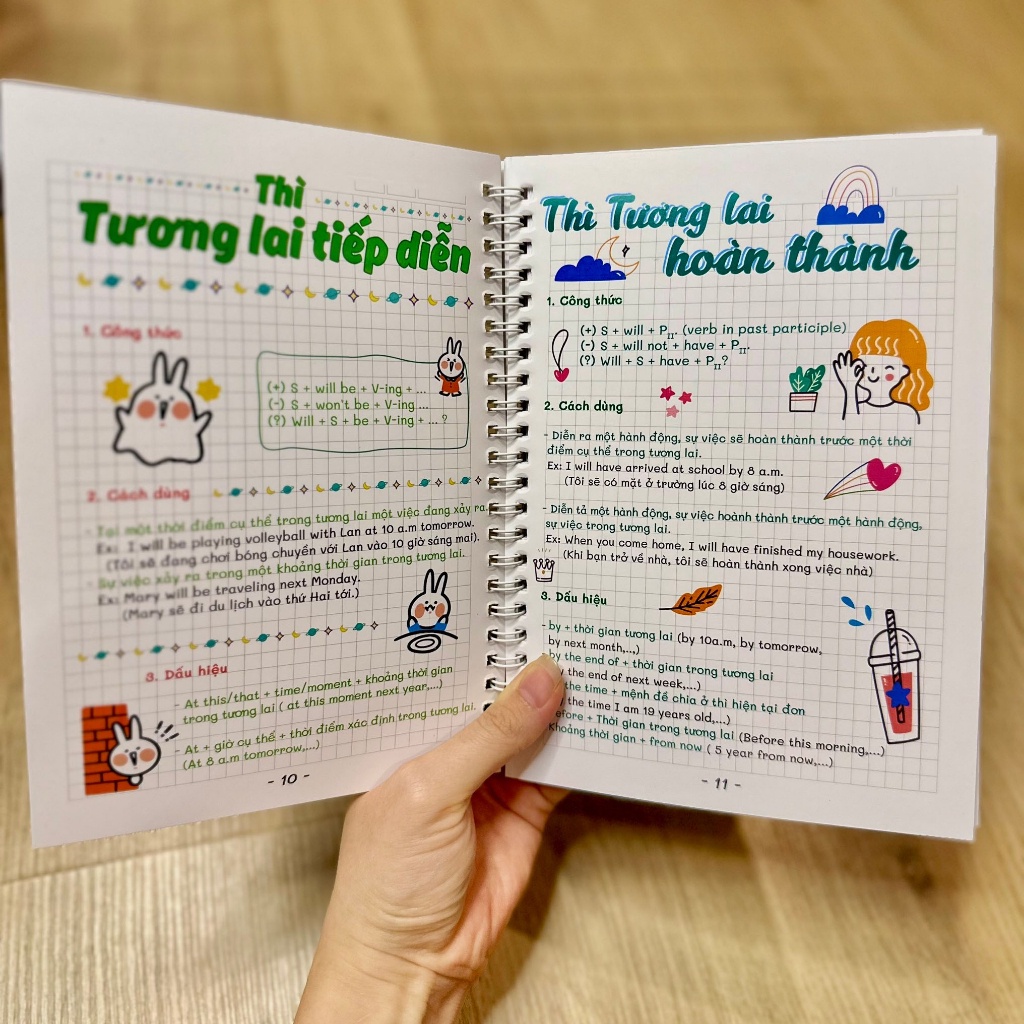 Thì
Tương lai tiếp diễn
1. Công thức
(+) S + will be + V-ing + ...
(-) S + won't be + V-ing ...
(?) Will + S + be + V-ing + ... ?
2. Cách dùng
- Tại một thời điểm cụ thể trong tương lai một việc đang xảy ra.
Ex: I will be playing volleyball with Lan at 10 a.m tomorrow.
(Tôi sẽ đang chơi bóng chuyền với Lan vào 10 giờ sáng mai).
- Sự việc xảy ra trong một khoảng thời gian trong tương lai.
Ex: Mary will be traveling next Monday.
(Mary sẽ đi du lịch vào thứ Hai tới.)
3. Dấu hiệu
- At this/that + time/moment + khoảng thời gian
trong tương lai ( at this moment next year,...)
- At + giờ cụ thể + thời điểm xáo định trong tương lai.
(At 8 a.m tomorrow,...)
- 10 -
Thì Tương lai
hoàn thành
1. Công thức
(+) S + will + PII. (verb in past participle)
(-) S + will not + have + PII.
(?) Will + S + have + PII?
2. Cách dùng
- Diễn ra một hành động, sự việc sẽ hoàn thành trước một thời
điểm cụ thể trong tương lai.
Ex: I will have arrived at school by 8 a.m.
(Tôi sẽ có mặt ở trường lúc 8 giờ sáng)
- Diễn tả một hành động, sự việc hoành thành trước một hành động,
sự việc trong tương lai.
Ex: When you come home, I will have finished my housework.
(Khi bạn trở về nhà, tôi sẽ hoàn thành xong việc nhà)
3. Dấu hiệu
- by + thời gian tương lai (by 10a.m, by tomorrow,
by next month,..,)
by the end of + thời gian trong tương lai
the end of next week,...)
the time + mệnh đề chia ở thì hiện tại đơn
the time I am 19 years old,...)
+ Thời gian trong tương lai (Before this morning,...)
Khoảng thời gian + from now ( 5 year from now,...)
- 11 -